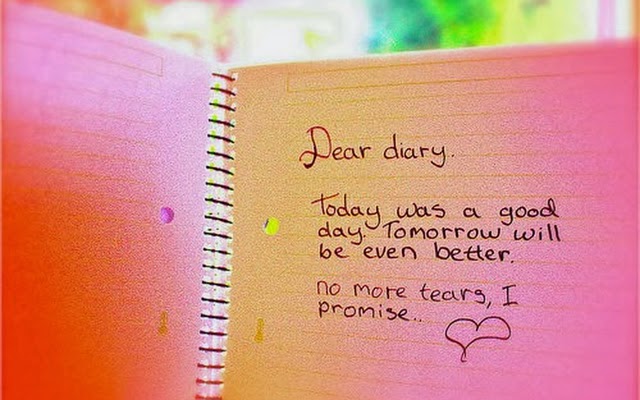 Dear diary.
Today was a good
day. Tomorrow will
be even better.
no more tears, I
promise..